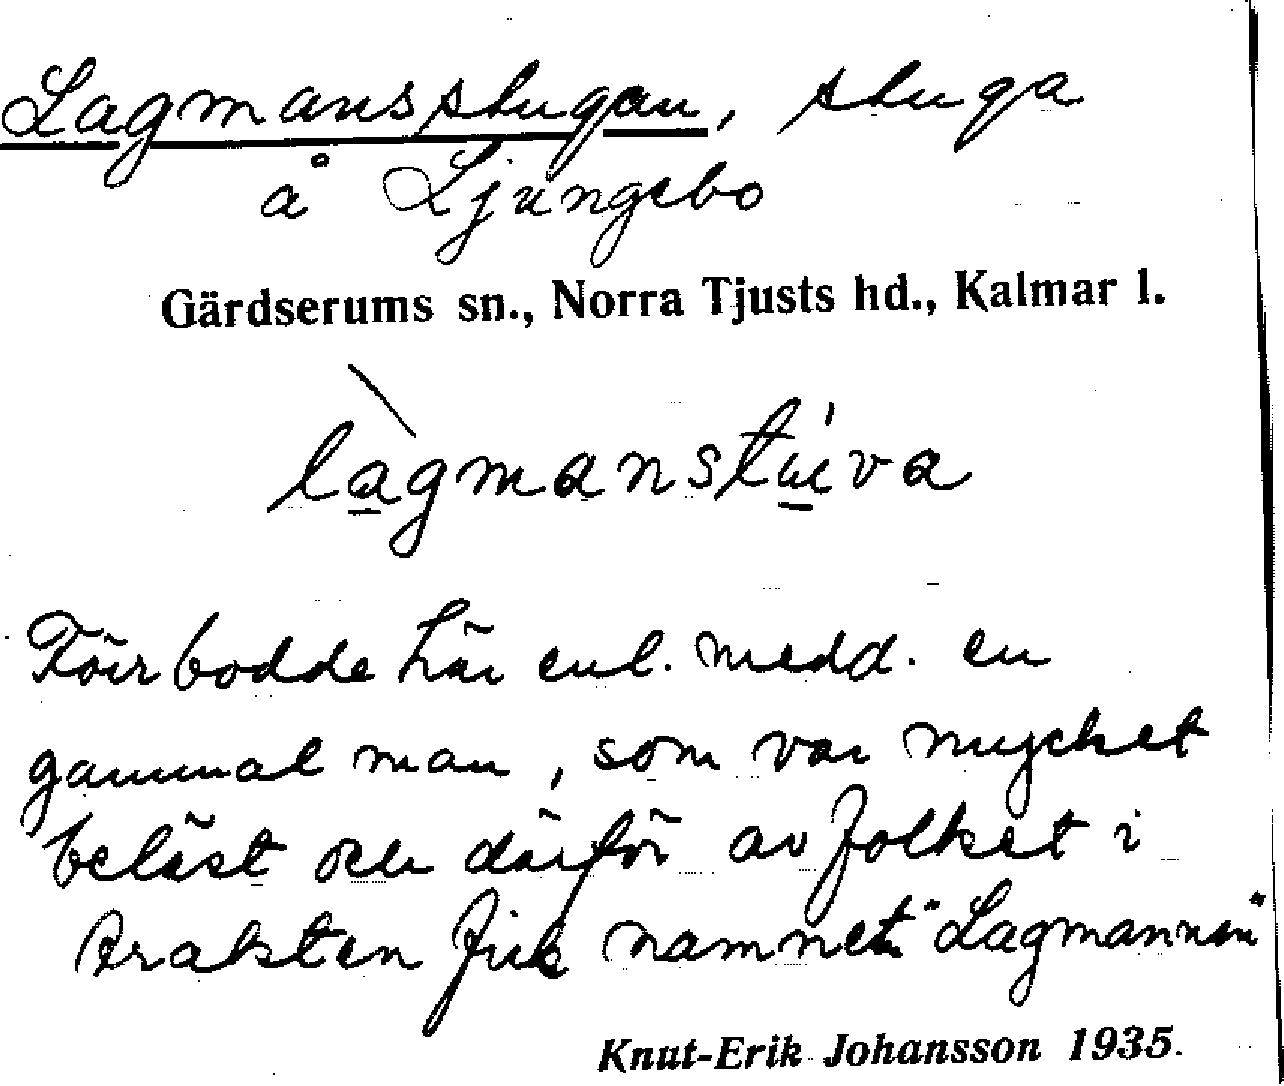 Lagmansstugan, stuga
å Ljungebo
Gärdserums sn., Norra Tjusts hd., Kalmar l.
làgmanstúva
Förr bodde här enl. medd. en
gammal man, som var mycket
beläst och därför av folket i
trakten fick namnet "Lagmannen"
Knut-Erik Johansson 1935.